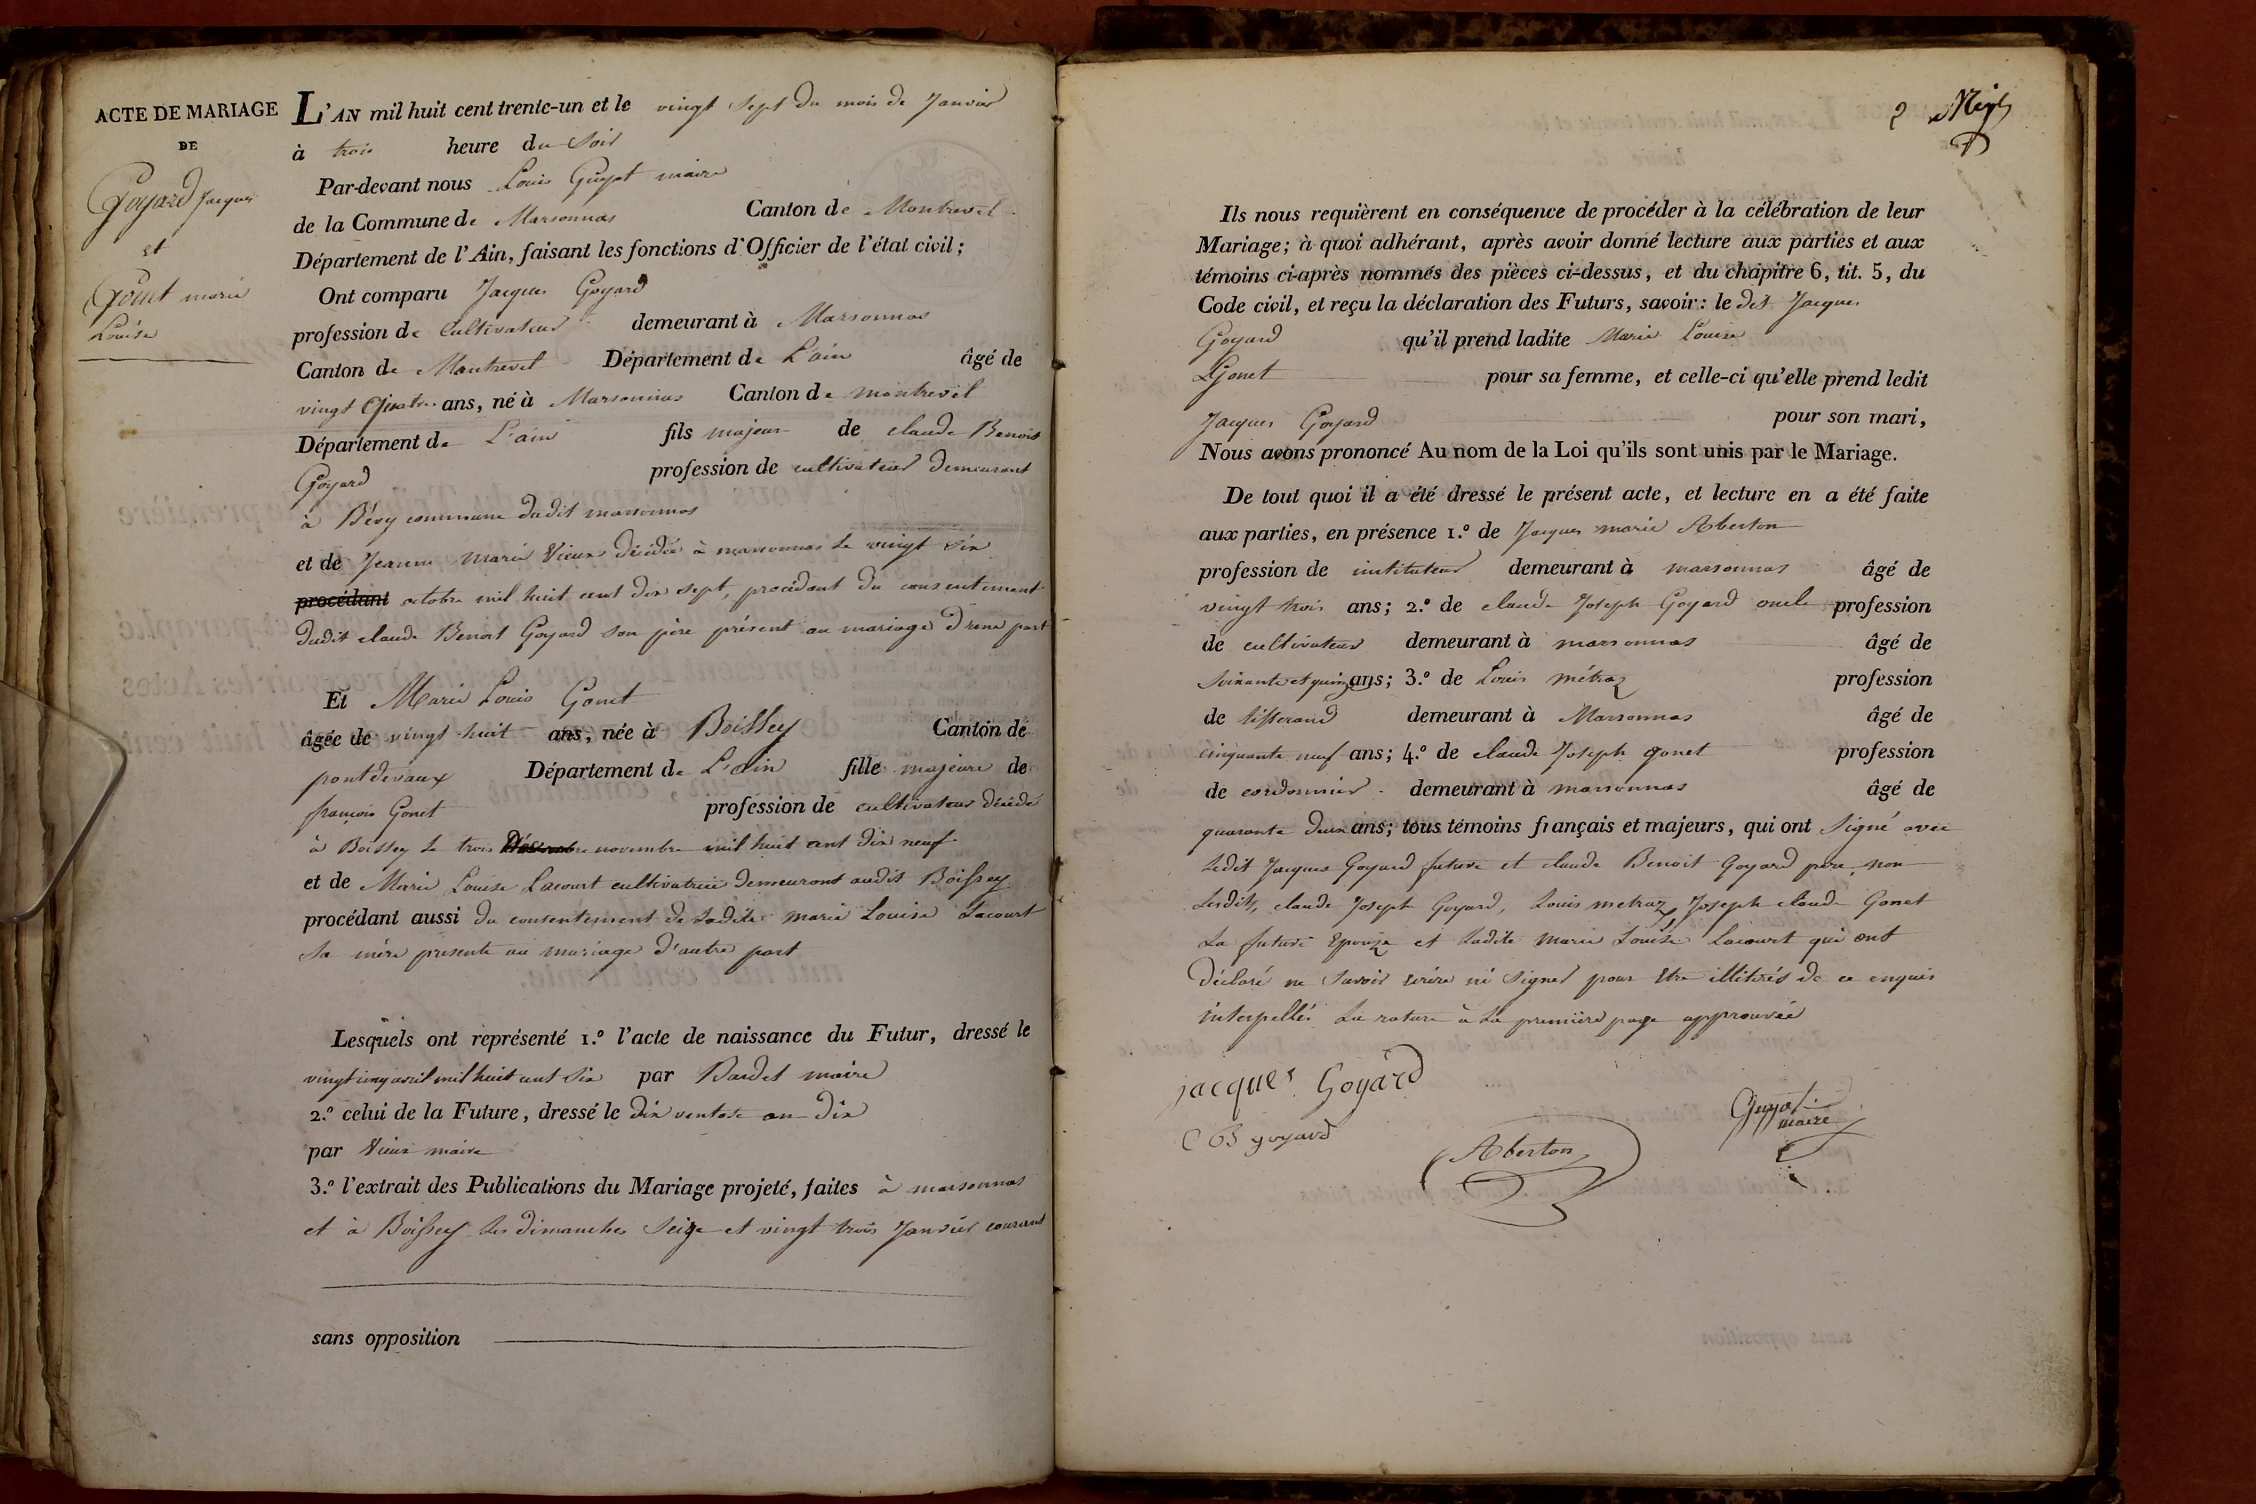 ACTE DE MARIAGE
DE
Goyard Jacques
et
Gonet marie
Louise
L'AN mil huit cent trente-un et le vingt sept du mois de Janvier
à trois heure du Soir
Par-devant nous Louis Guyot maire
de la Commune de Marsonnas Canton de Montrevel
Département de l'Ain, faisant les fonctions d'Officier de l'état civil;
Ont comparu Jacques Goyard
profession de Cultivateur demeurant à Marsonnas
Canton de Montrevel Département de L'ain âgé de
vingt Quatre ans, né à Marsonnas Canton de montrevel
Département de L'ain fils majeur de claude Benoit
Goyard profession de cultivateur demeurant
à Bévy commune dudit marsonnas
et de Jeanne Marie Vieux décédée à marsonnas le vingt six
procédant octobre mil huit cent dix sept, procédant du consentement
dudit claude Benoit Goyard son père présent au mariage d'une part
Et Marie Louis Gonet
âgée de vingt huit ans, née à Boissey Canton de
pontdevaux Département de L'ain fille majeure de
françois Gonet profession de cultivateur décédé
à Boissey le trois novembre mil huit cent dix neuf
et de Marie Louise Lacourt cultivatrice demeurant audit Boissey
procédant aussi du consentement de Ladite marie Louise Lacourt
Sa mère présente au mariage d'autre part
Lesquels ont représenté 1.° l'acte de naissance du Futur, dressé le
vingt cinq avril mil huit cent six par Bardet maire
2.° celui de la Future, dressé le dix ventose an dix
par Vieux maire
3.° l'extrait des Publications du Mariage projeté, faites à marsonnas
et à Boissey les dimanches Seize et vingt trois Janvier courant
sans opposition
2
Ils nous requièrent en conséquence de procéder à la célébration de leur
Mariage; à quoi adhérant, après avoir donné lecture aux parties et aux
témoins ci-après nommés des pièces ci-dessus, et du chapitre 6, tit. 5, du
Code civil, et reçu la déclaration des Futurs, savoir: le dit Jacques
Goyard qu'il prend ladite Marie Louise
Gonet pour sa femme, et celle-ci qu'elle prend ledit
Jacques Goyard pour son mari,
Nous avons prononcé Au nom de la Loi qu'ils sont unis par le Mariage.
De tout quoi il a été dressé le présent acte, et lecture en a été faite
aux parties, en présence 1.° de Jacques marie Aberton
profession de instituteur demeurant à marsonnas âgé de
vingt trois ans; 2.° de claude Joseph Goyard oncle profession
de cultivateur demeurant à marsonnas âgé de
Soixante et quinze ans; 3.° de Louis métraz profession
de tisserand demeurant à Marsonnas âgé de
cinquante neuf ans; 4.° de claude Joseph gonet profession
de cordonnier demeurant à marsonnas âgé de
quarante deux ans; tous témoins français et majeurs, qui ont Signé avec
Ledit Jacques Goyard future et claude Benoit Goyard père, non
Lesdits, claude Joseph Goyard, Louis metraz, Joseph claude Gonet
La future Epouze et Ladite Marie Louise Lacourt qui ont
déclaré ne Savoir écrire ni Signer pour Etre illitérés de ce enquis
interpellés La rature à La première page approuvée
jacques Goyard
C B goyard
Aberton
Guyot
maire